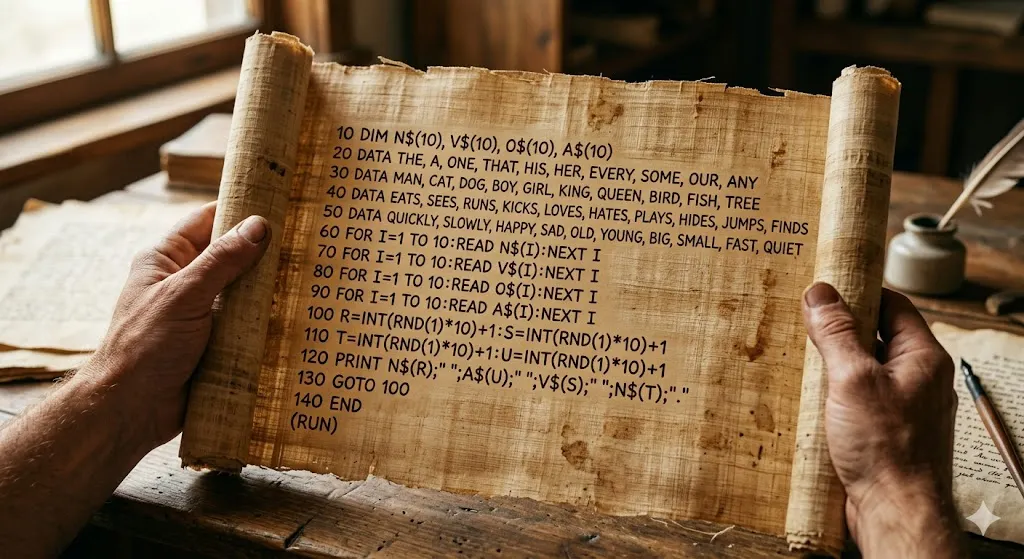 10 DIM N$(10), V$(10), O$(10), A$(10)
20 DATA THE, A, ONE, THAT, HIS, HER, EVERY, SOME, OUR, ANY
30 DATA MAN, CAT, DOG, BOY, GIRL, KING, QUEEN, BIRD, FISH, TREE
40 DATA EATS, SEES, RUNS, KICKS, LOVES, HATES, PLAYS, HIDES, JUMPS, FINDS
50 DATA QUICKLY, SLOWLY, HAPPY, SAD, OLD, YOUNG, BIG, SMALL, FAST, QUIET
60 FOR I=1 TO 10:READ N$(I):NEXT I
70 FOR I=1 TO 10:READ V$(I):NEXT I
80 FOR I=1 TO 10:READ O$(I):NEXT I
90 FOR I=1 TO 10:READ A$(I):NEXT I
100 R=INT(RND(1)*10)+1:S=INT(RND(1)*10)+1
110 T=INT(RND(1)*10)+1:U=INT(RND(1)*10)+1
120 PRINT N$(R);" ";A$(U);" ";V$(S);" ";N$(T);"."
130 GOTO 100
140 END
(RUN)